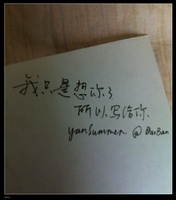 我只是想你了
所以写给你
yansummer @ DouBan